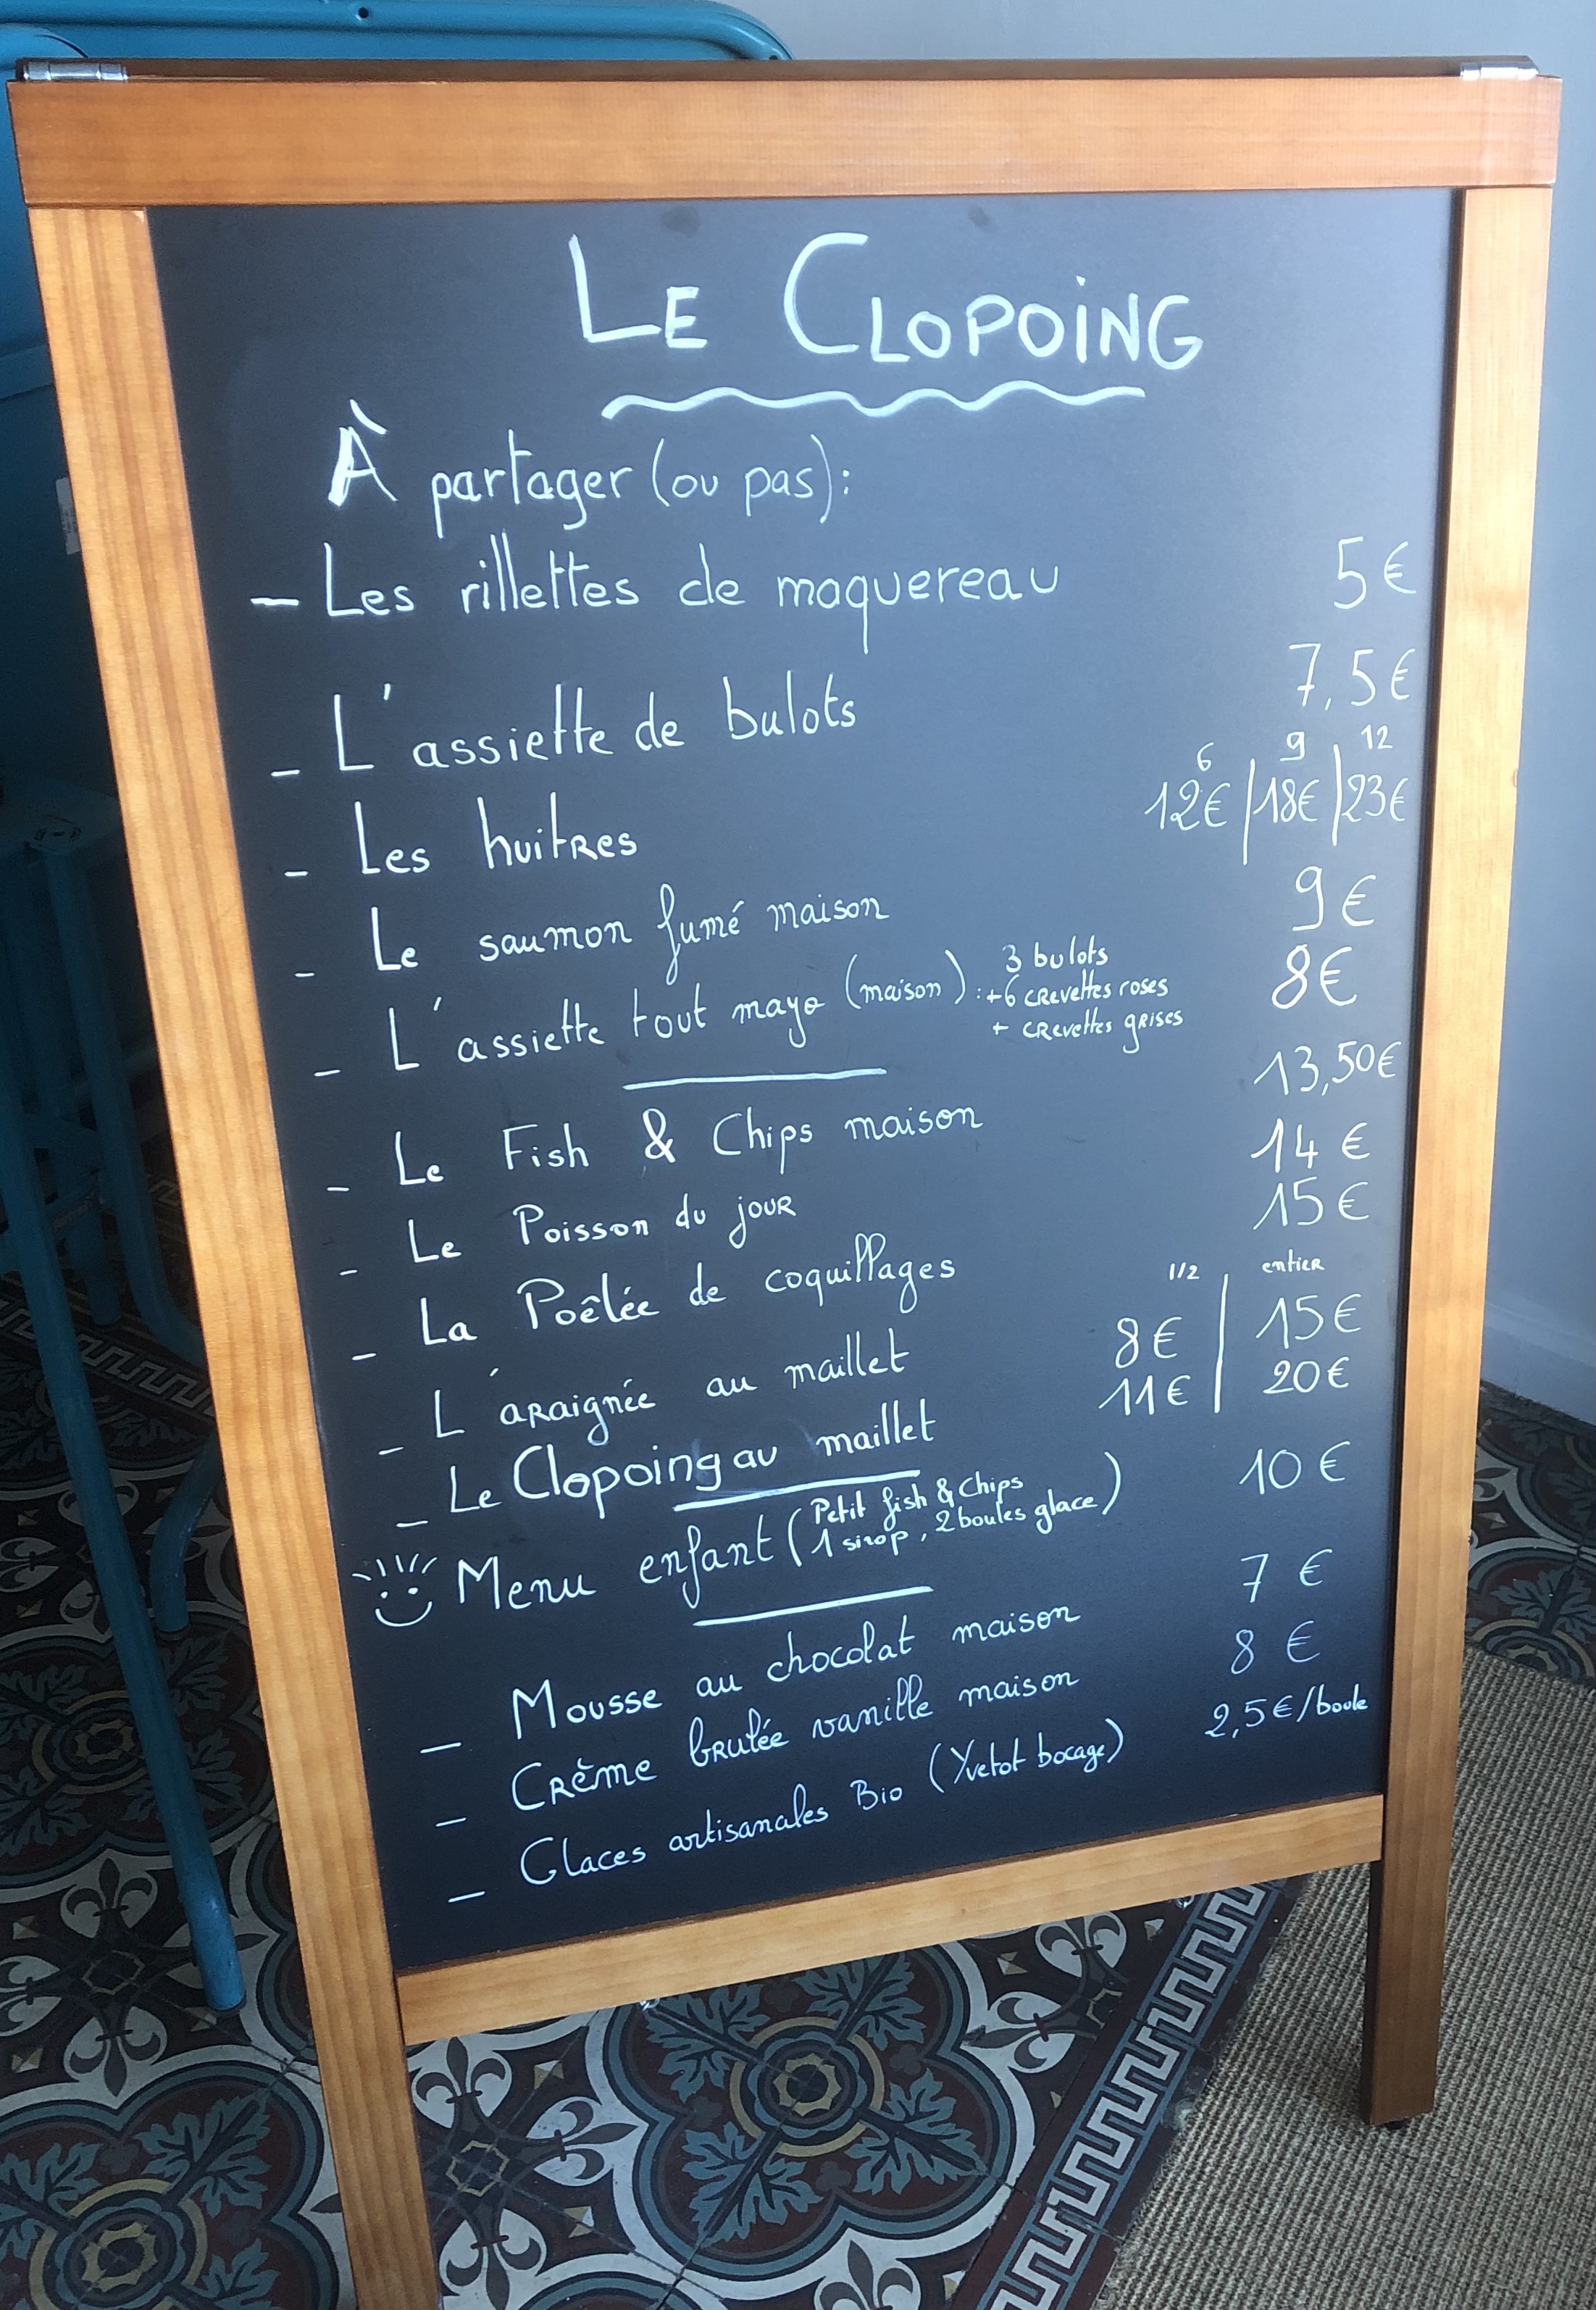 LE CLOPOING
À partager (ou pas):
- Les rillettes de maquereau 5€
- L'assiette de bulots 7,5€
6 9 12
- Les huitres 12€ | 18€ | 23€
- Le saumon fumé maison 9€
- L'assiette tout mayo (maison) : 3 bulots 8€
+6 crevettes roses
+ crevettes grises
- Le Fish & Chips maison 13,50€
- Le Poisson du jour 14€
- La Poêlée de coquillages 15€
1/2 entier
- L'araignée au maillet 8€ | 15€
- Le Clopoing au maillet 11€ | 20€
Menu enfant (Petit fish & Chips 10€
1 sirop, 2 boules glace)
- Mousse au chocolat maison 7€
- Crème brulée vanille maison 8€
- Glaces artisanales Bio (Yvetot bocage) 2,5€/boule